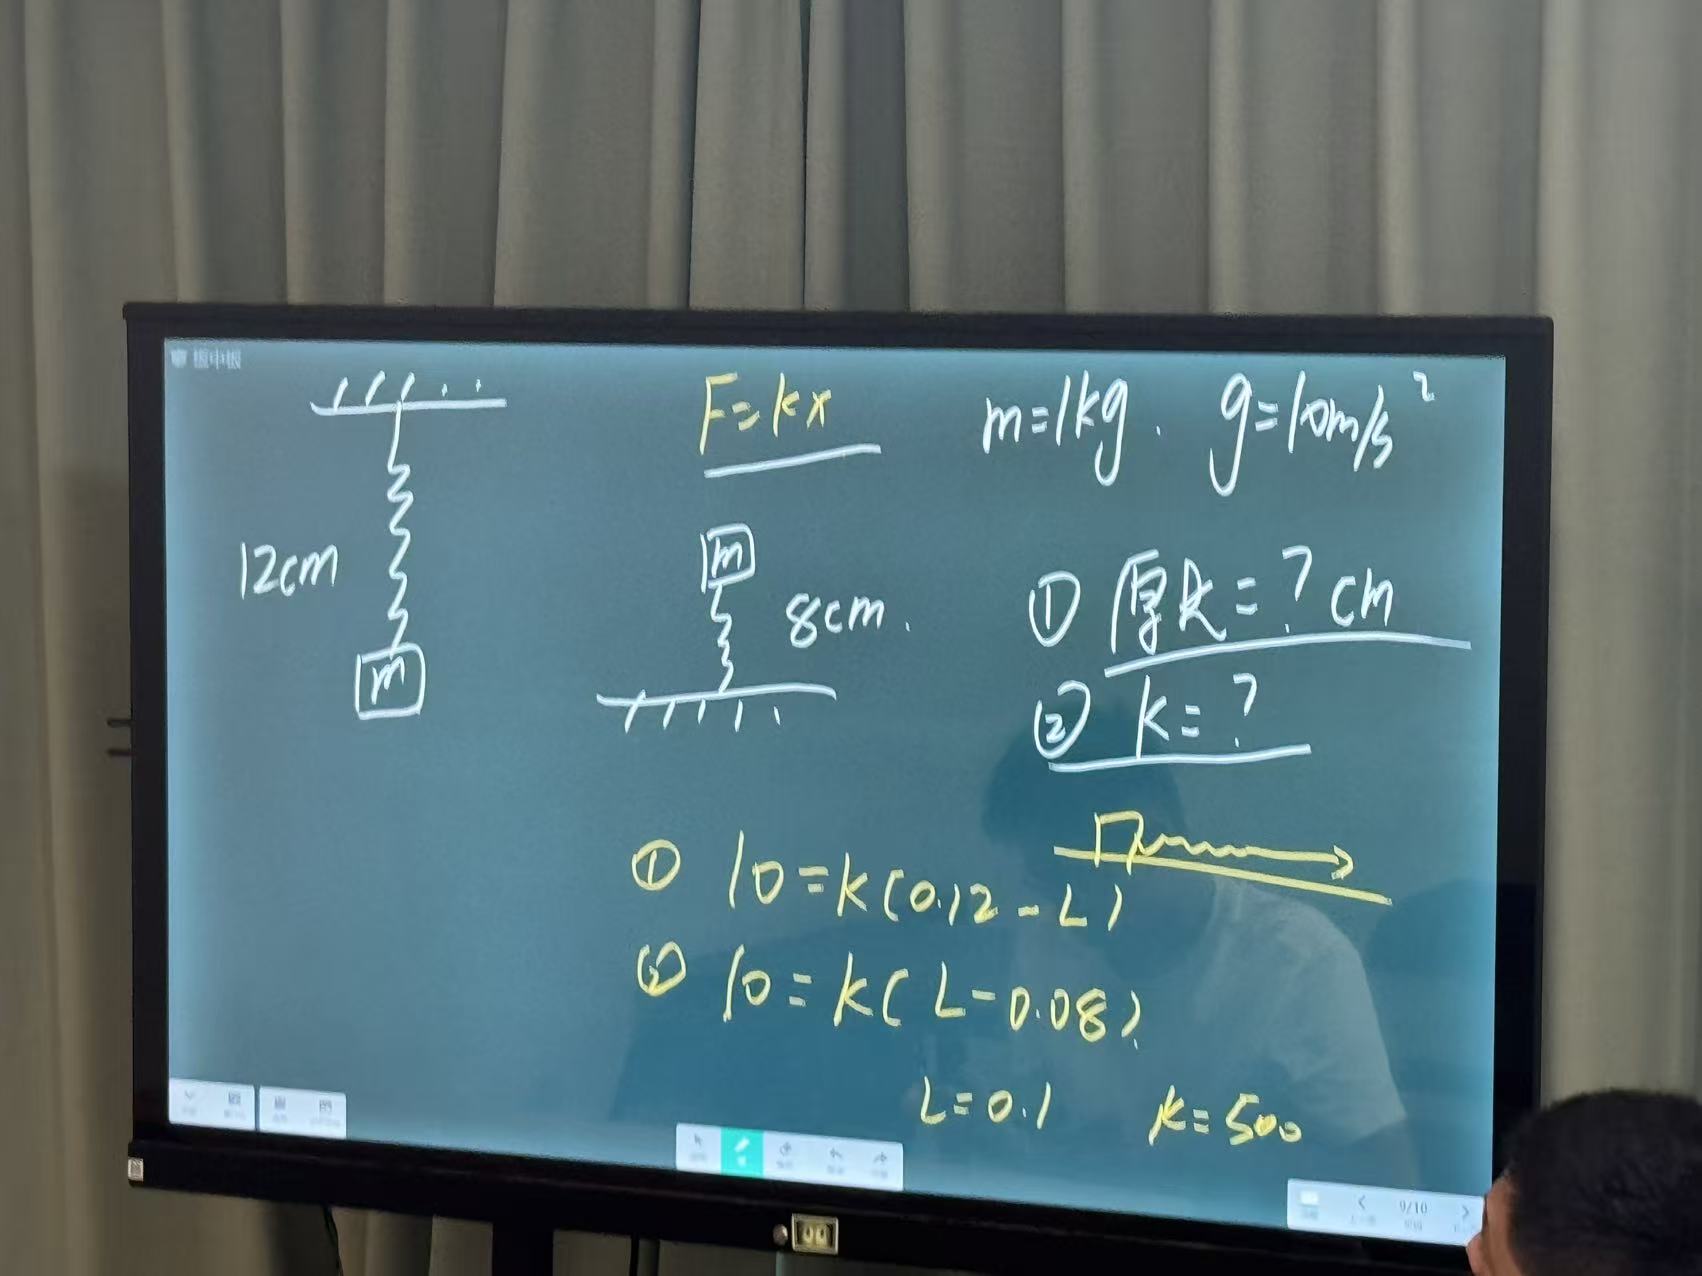 板中板
F=kx
m=1kg. g=10m/s²
12cm
m
m
8cm.
① 原长=?cm
② k=?
① 10=k(0.12-L)
② 10=k(L-0.08)
L=0.1 k=500
9/10